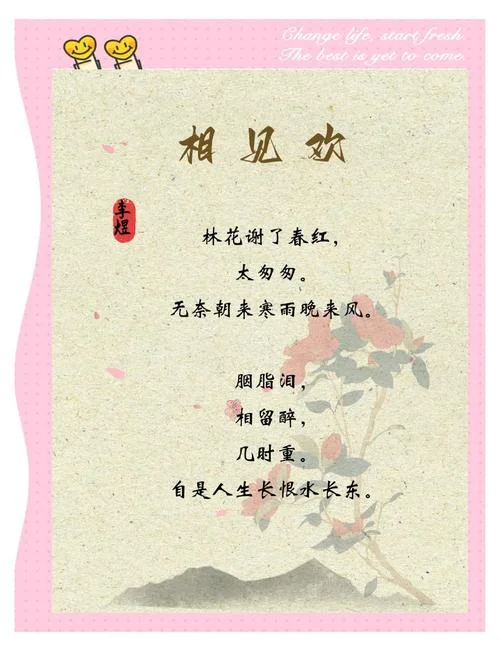 Change life, start fresh.
The best is yet to come.
相见欢
李煜
林花谢了春红，
太匆匆。
无奈朝来寒雨晚来风。
胭脂泪，
相留醉，
几时重。
自是人生长恨水长东。